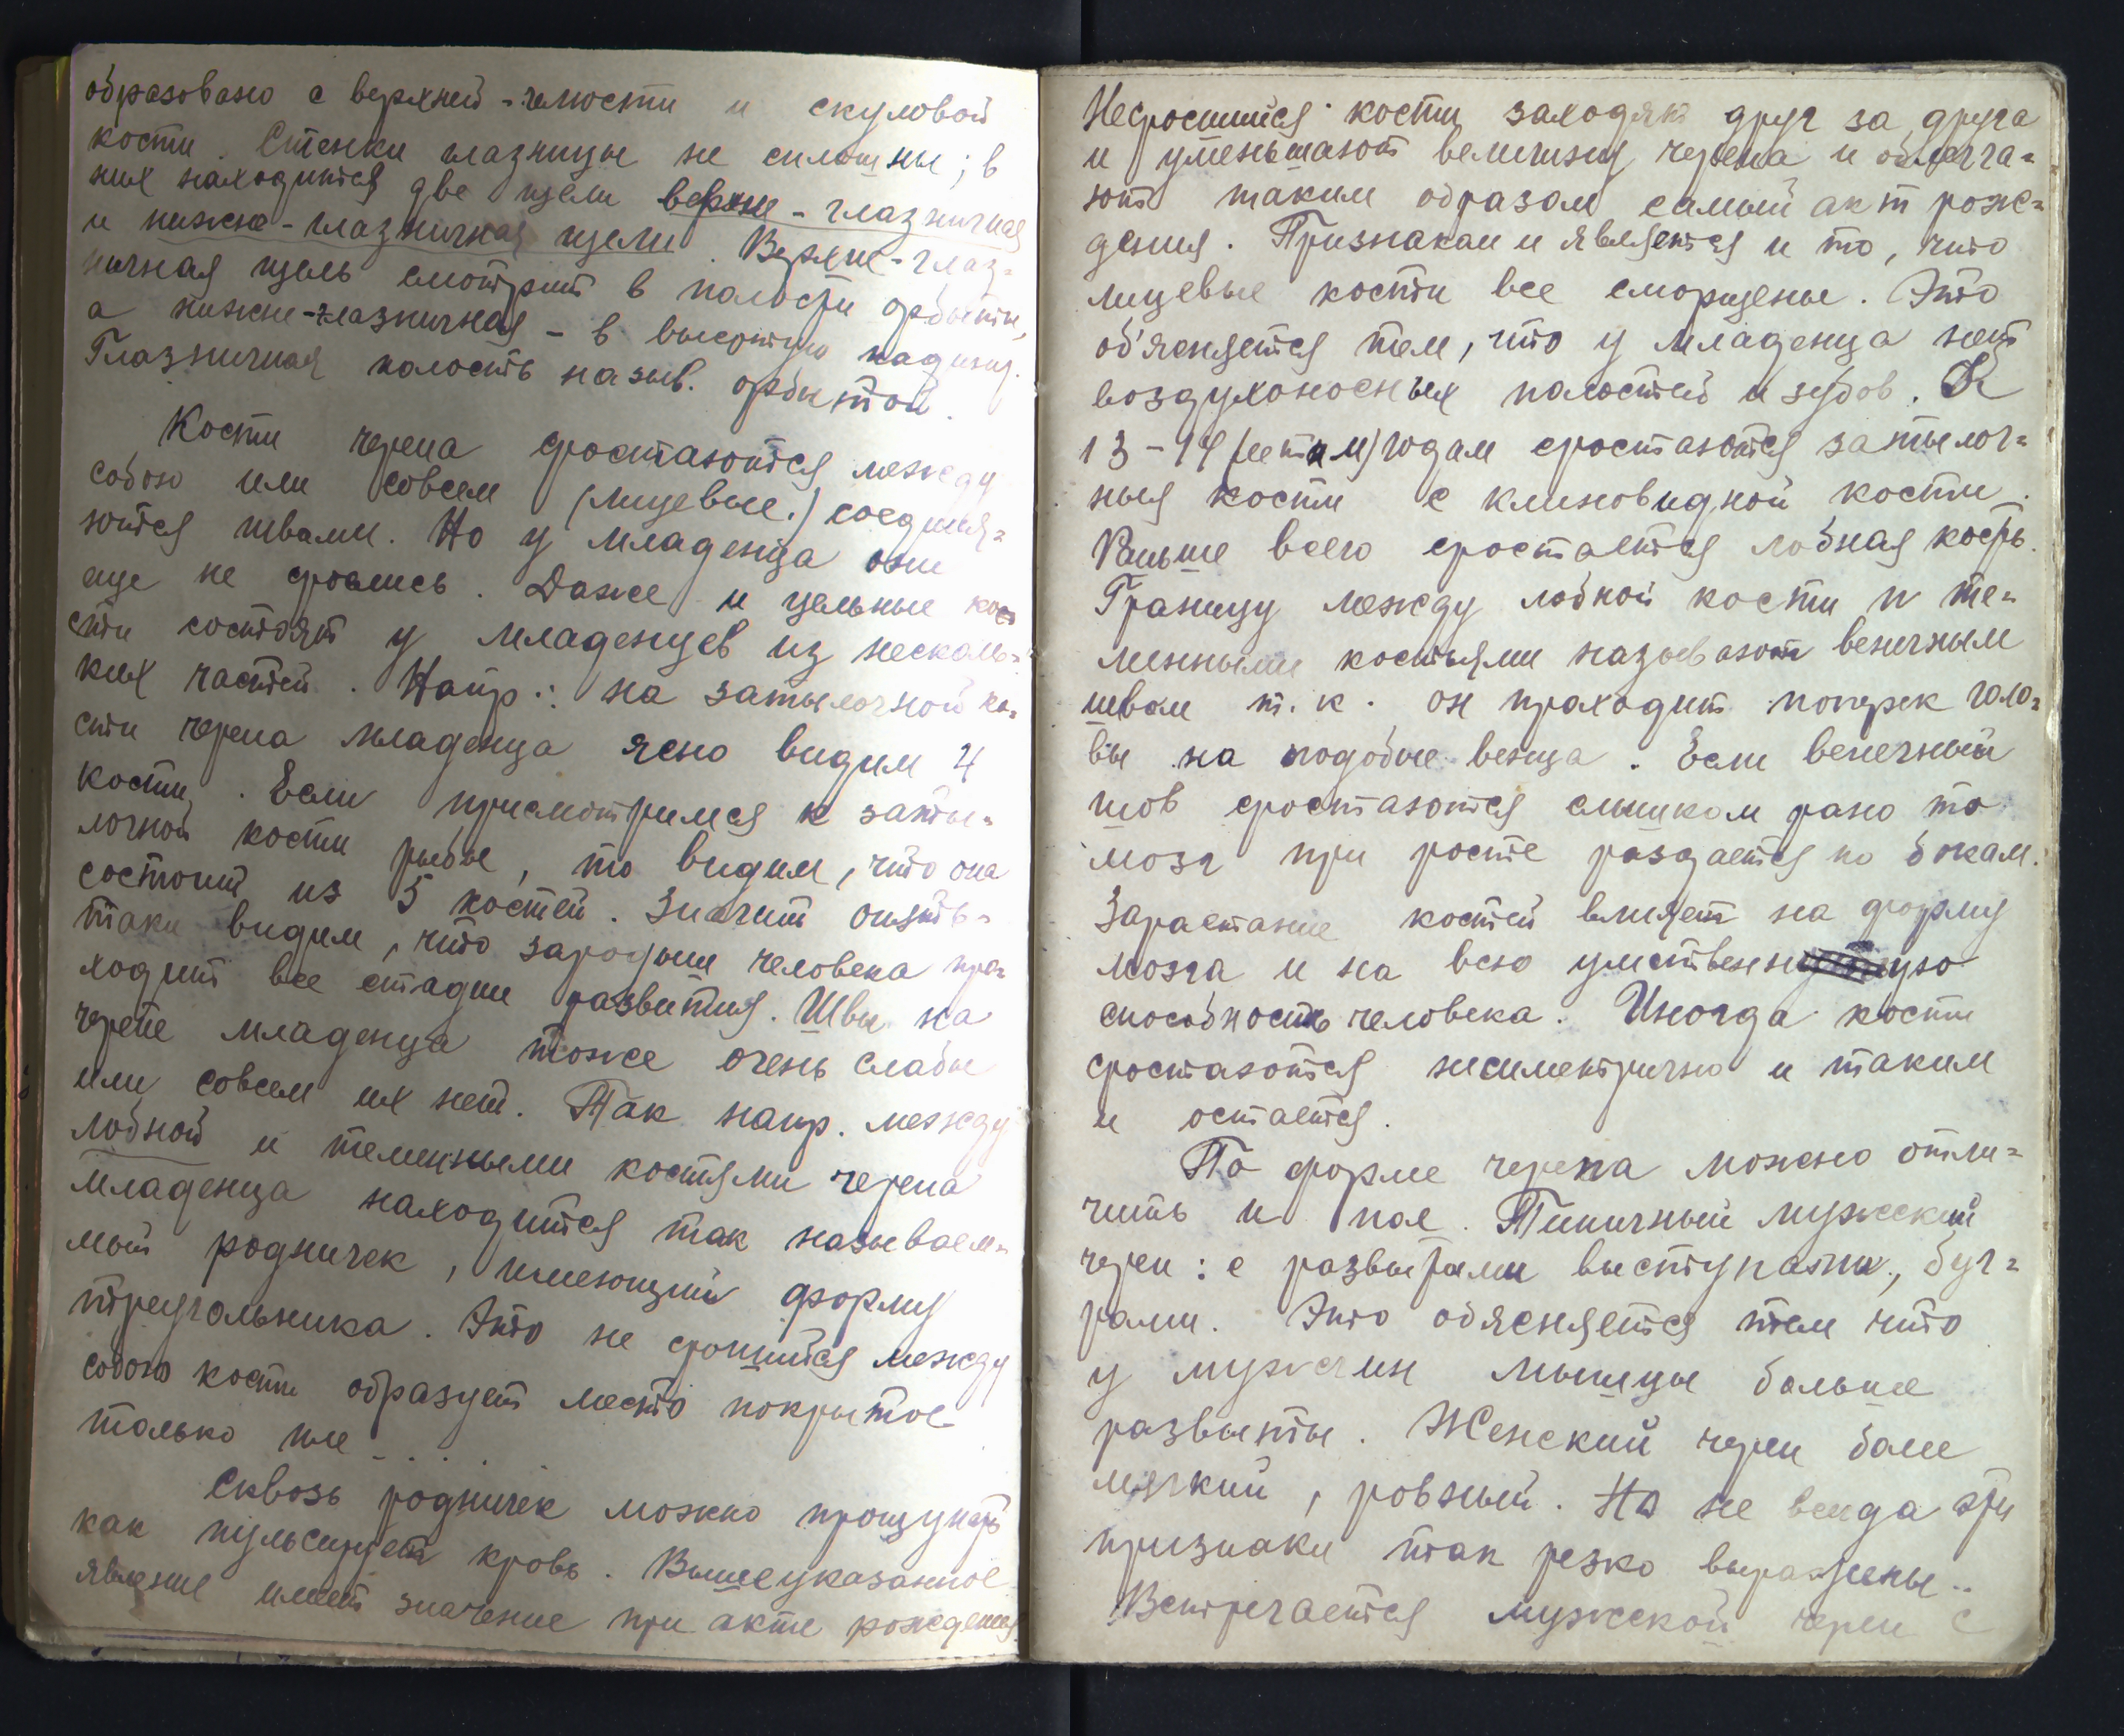 образовано с верхней-челюсти и скуловой
кости. Стенки глазницы не сплошны; в
них находится две щели верхне-глазничная
и нижне-глазничная щели. Верхне-глаз-
ничная щель смотрит в полости орбиты,
а нижне-глазничная - в височную впадину.
Глазничная полость назыв. орбитой.
Кости черепа сростаются между
собою или совсем (лицевые.) соединя-
ются швами. Но у младенца они
еще не срослись. Даже и цельные ко
сти состоят у младенцев из несколь-
ких частей. Напр.: на затылочной ко-
сти черепа младенца ясно видим 4
кости. Если присмотримся к заты-
лочной кости рыбы, то видим, что она
состоит из 5 костей. Значит опять-
таки видим, что зародыш человека про-
ходит все стадии развития. Швы на
черепе младенца тоже очень слабы
или совсем их нет. Так напр. между
лобной и теменными костями черепа
младенца находится так называем-
мый родничек, имеющий форму
треугольника. Это не сросшиися между
собою кости образует место покрытое
только
Сквозь родничек можно прощупать
как пульсирует кровь. Вышеуказанное
явление имеет значение при акте рождения
Несросшиися кости заходят друг за друга
и уменьшают величину черепа и облегча-
ют таким образом самый акт рож-
дения. Признаками является и то, что
лицевые кости все сморщены. Это
об'ясняется тем, что у младенца нет
воздухоносных полостей и зубов. К
13-14 (летам) годам сростаются затылоч-
ныя кости с клиновидной кости.
Раньше всего сростается лобная кость.
Границу между лобной кости и те-
менными костьями называют венечным
швом т.к. он проходит поперек голо-
вы на подобие венца. Если венечный
шов сростаются слишком рано то
мозг при росте раздается по бокам.
Зарастание костей влияет на форму
мозга и на всю умственную
способность человека. Иногда кости
сростаются несиметрично и таким
и остается.
По форме черепа можно отли-
чить и пол. Типичный мужеский
череп: с развитыми выступами, буг-
рами. Это обясняется тем что
у мужчин мышцы больше
развиты. Женский череп боле
мягкий, ровный. Но не всегда эти
признаки так резко выражены..
Встречается мужской череп с